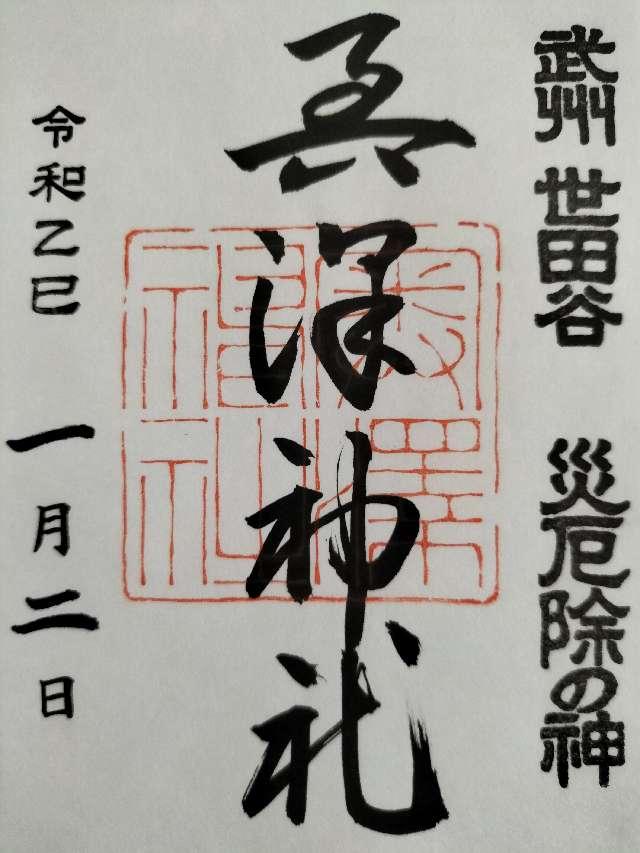 武州 世田谷 災厄除の神
奥澤神社
令和乙巳 一月二日
奥澤
神社